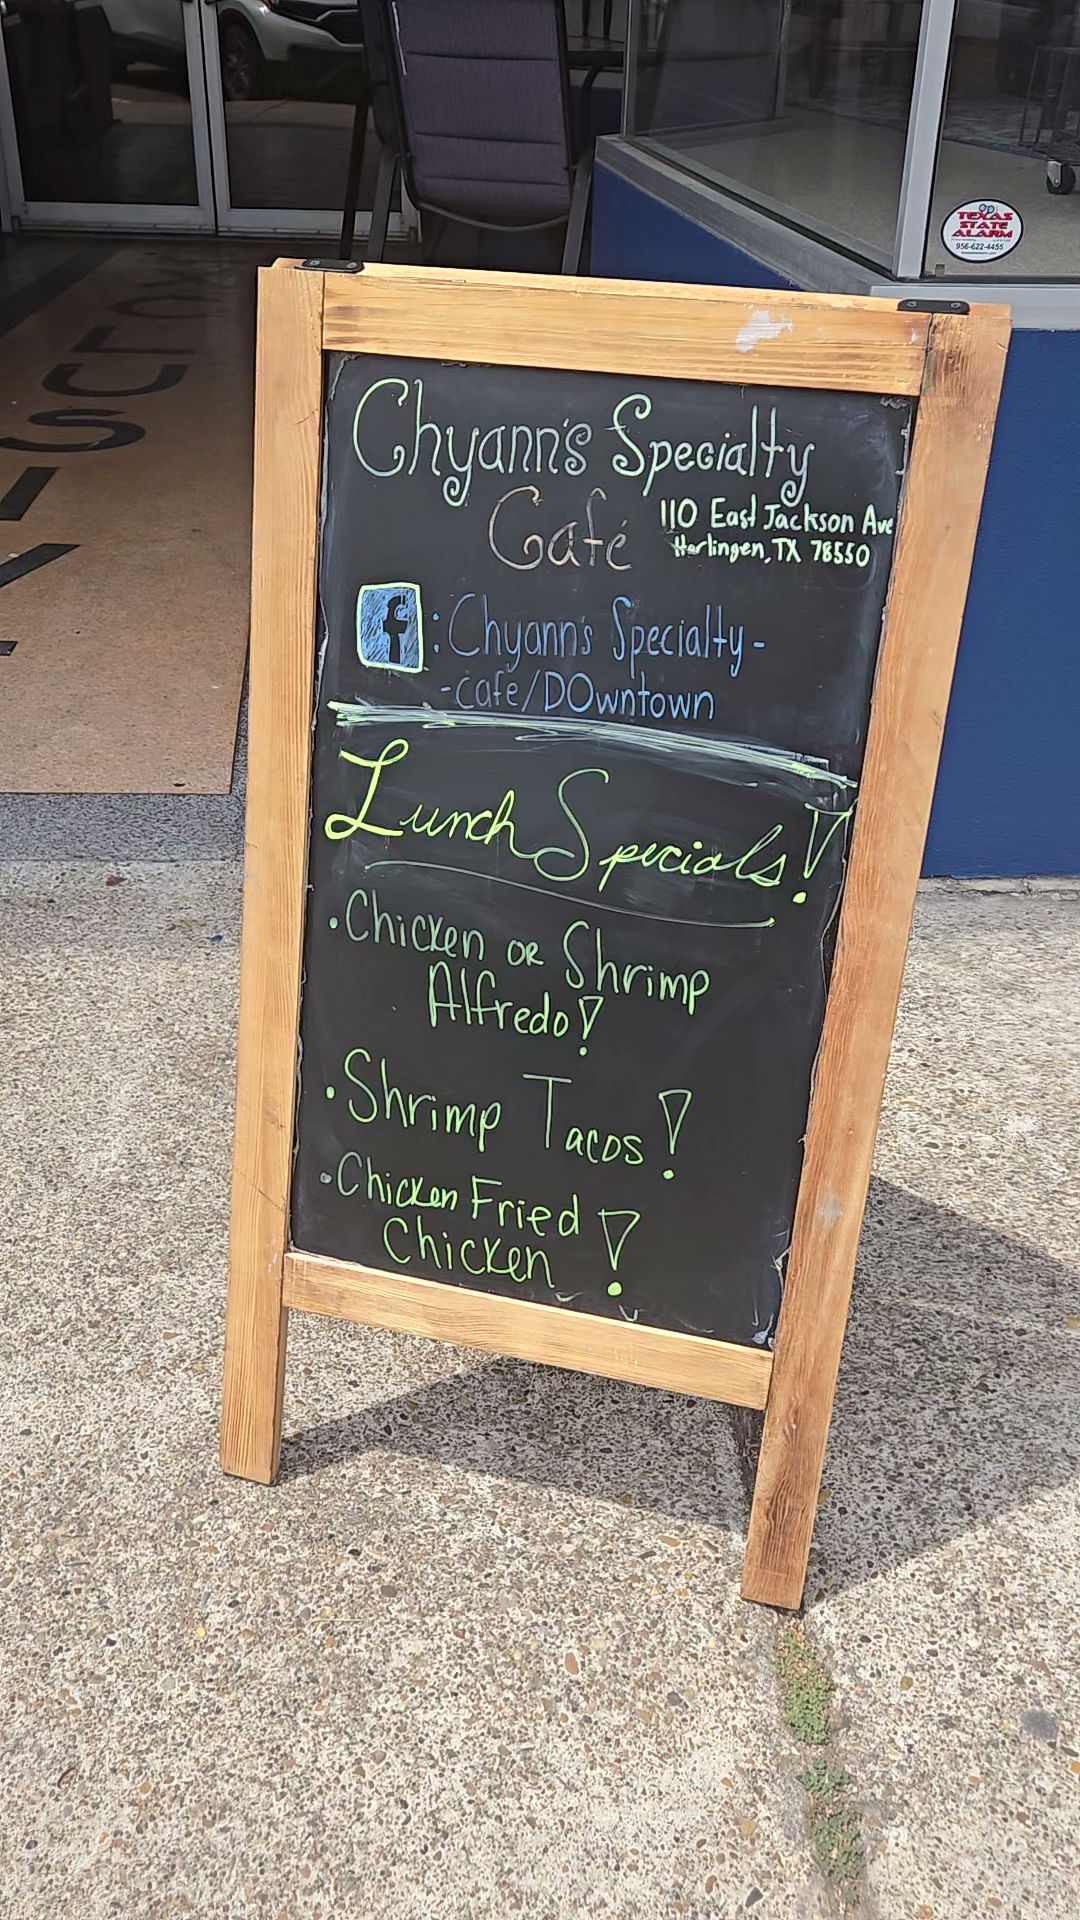 TEXAS
STATE
ALARM
956-622-4455
CLUSIV
Chyann's Specialty
Café
110 East Jackson Ave
Harlingen, TX 78550
f : Chyann's Specialty-
-cafe/DOwntown
Lunch Specials!
• Chicken OR Shrimp
Alfredo!
• Shrimp Tacos!
• Chicken Fried
Chicken!